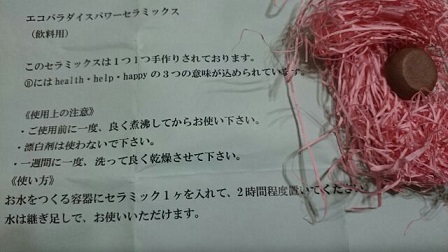 エコパラダイスパワーセラミックス
(飲料用)
このセラミックスは1つ1つ手作りされております。
Ⓗにはhealth・help・happyの3つの意味が込められています
《使用上の注意》
・ご使用前に一度、良く煮沸してからお使い下さい。
・漂白剤は使わないで下さい。
・一週間に一度、洗って良く乾燥させて下さい。
《使い方》
お水をつくる容器にセラミック1ヶを入れて、2時間程度置いてください
水は継ぎ足しで、お使いいただけます。